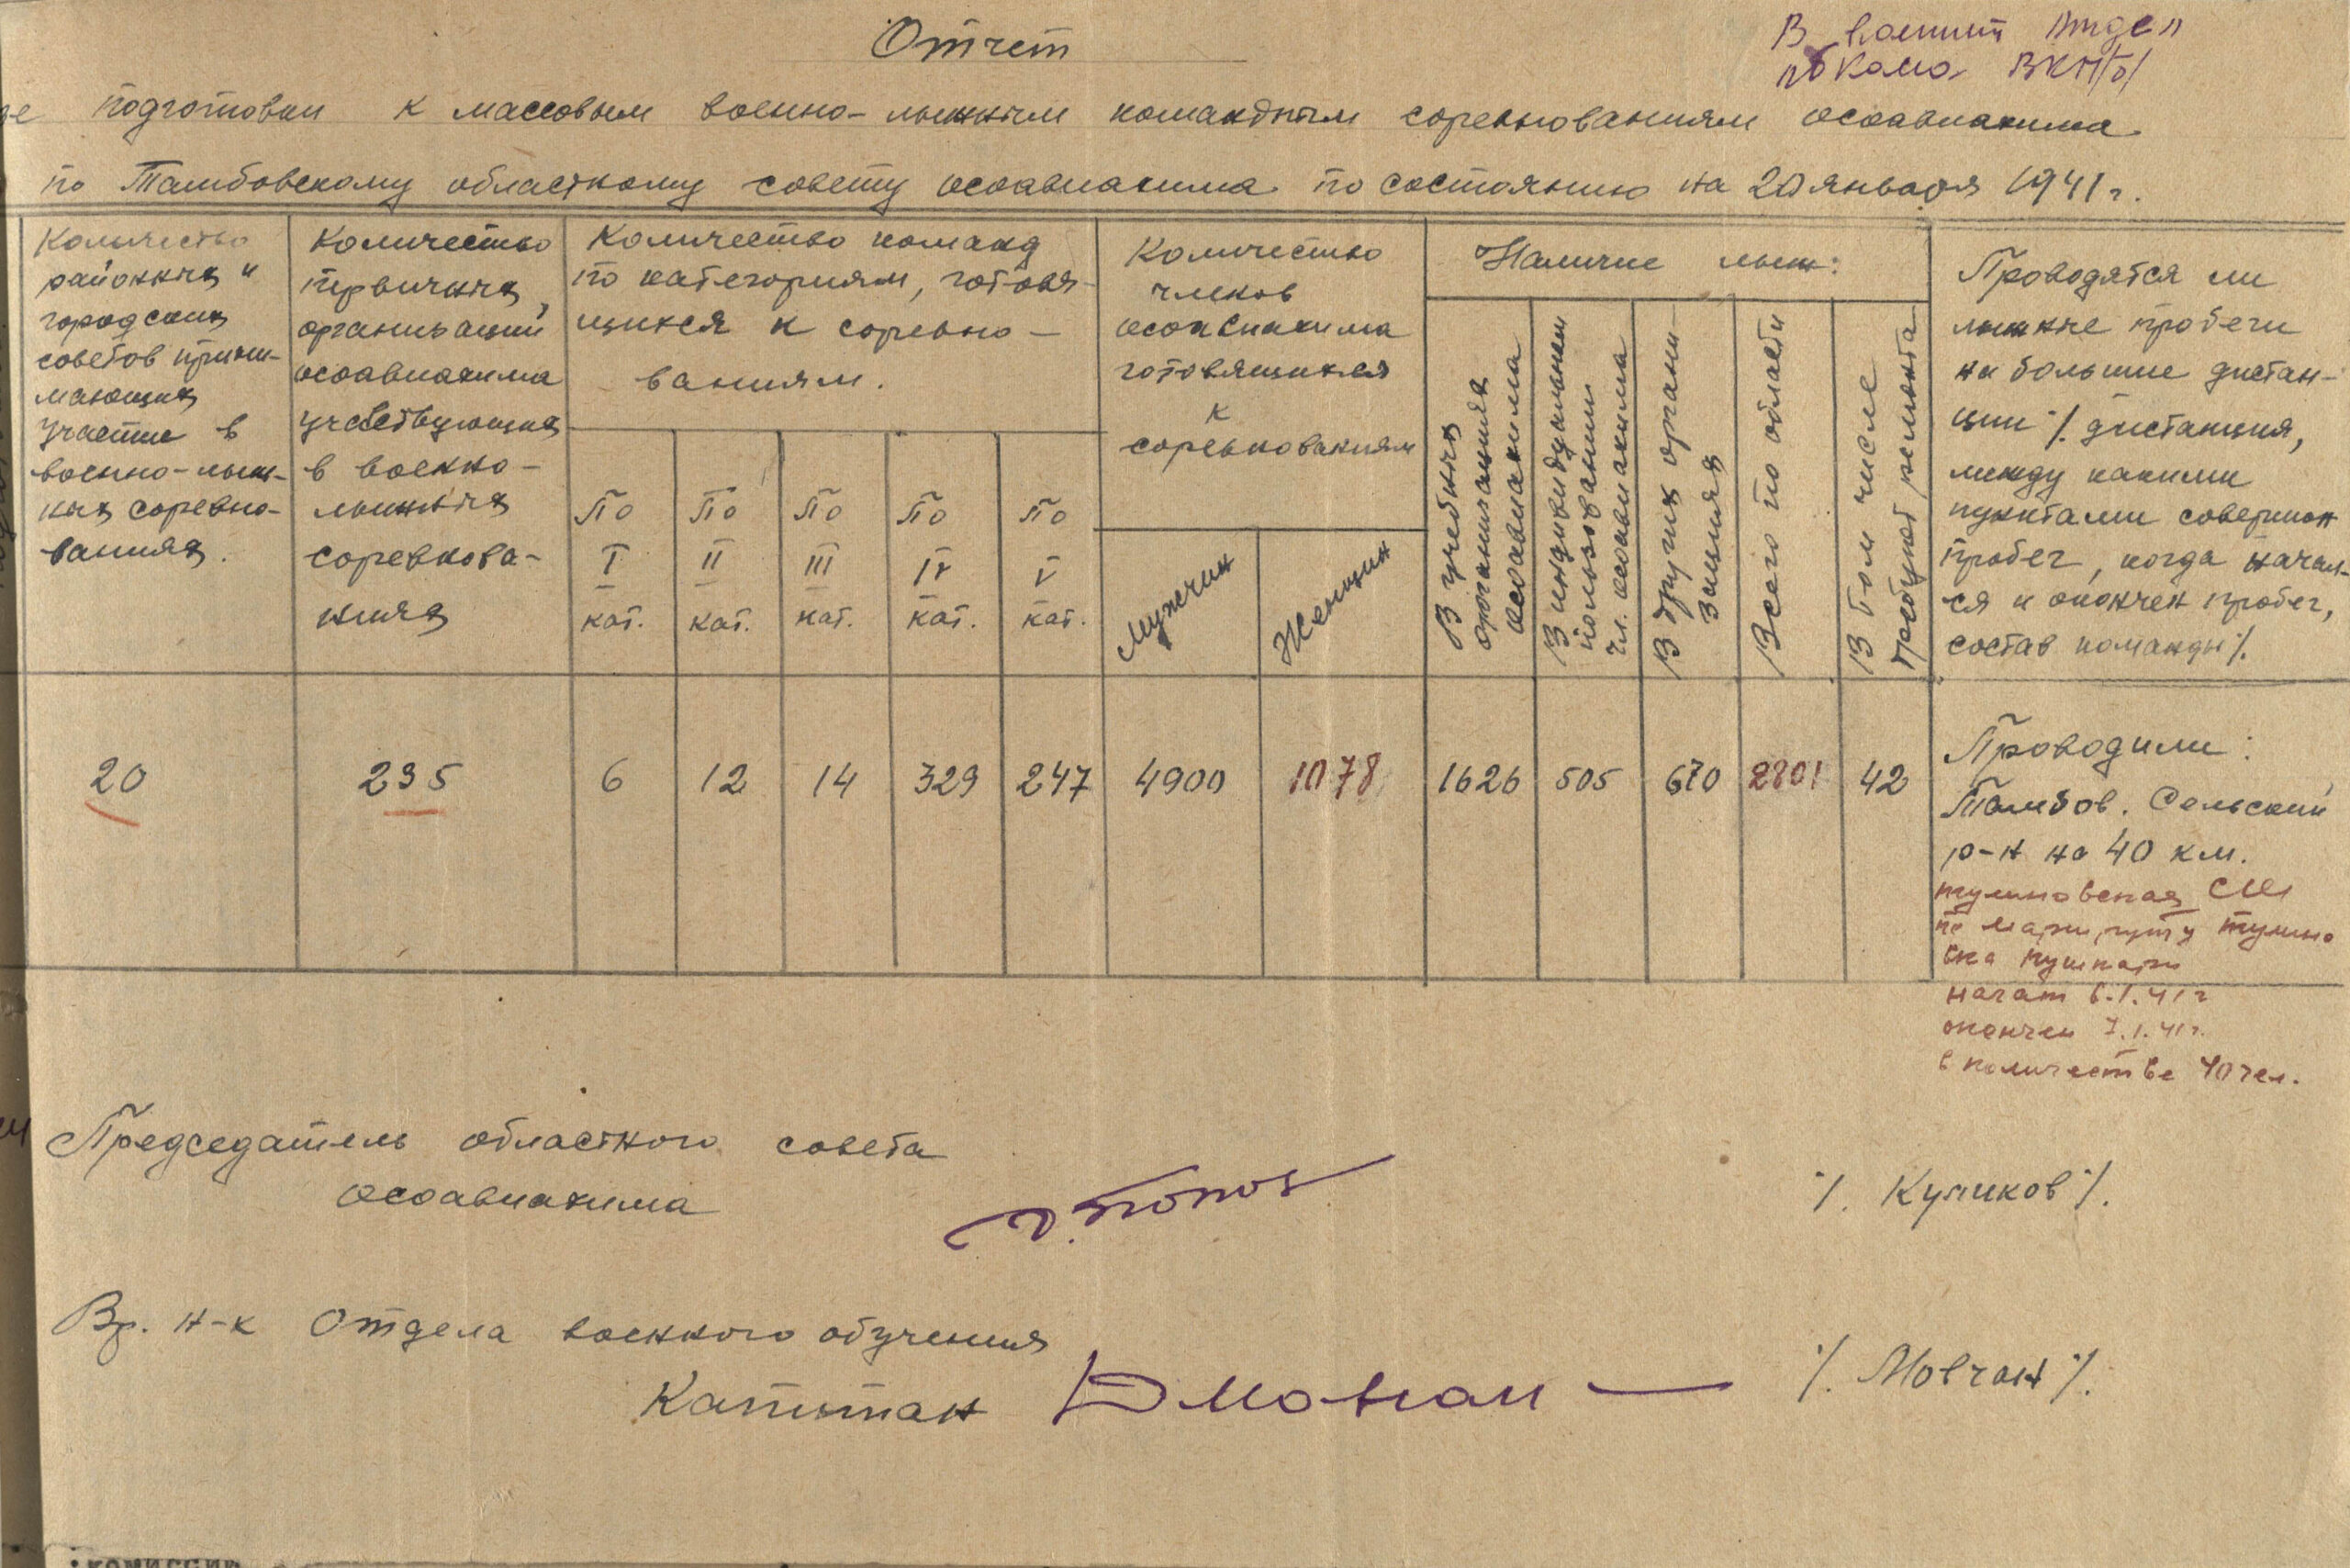 Отчет
В военный отдел
обкома ВКП/б/
подготовки к массовым военно-лыжным командным соревнованиям осоавиахима
по Тамбовскому областному совету осоавиахима по состоянию на 20 января 1941 г.
Количество
районных и
городских
советов прини-
мающих
участие в
военно-лыж-
ных соревно-
ваниях.
Количество
первичных
организаций
осоавиахима
участвующих
в военно-
лыжных
соревнова-
ниях
Количество команд
по категориям, готовя-
щихся к соревно-
ваниям.
По
I
кат.
По
II
кат.
По
III
кат.
По
IV
кат.
По
V
кат.
Количество
членов
осоавиахима
готовящихся
к
соревнованиям
Мужчин
Женщин
Наличие лыж:
В учебных
организациях
осоавиахима
В индивидуальном
пользовании
чл. осоавиахима
В других органи-
зациях
Всего по области
В том числе
требуют ремонта
Проводятся ли
лыжные пробеги
на большие дистан-
ции /. дистанция,
между какими
пунктами совершен
пробег, когда начал-
ся и окончен пробег,
состав команды /.
20
235
6
12
14
329
247
4900
1078
1626
505
670
2801
42
Проводили:
Тамбов. Сельский
р-н на 40 км.
тулиновская СШ
по маршруту тулино
вка пушкари
начат 6.1.41 г
окончен 7.1.41 г.
в количестве 40 чел.
Председатель областного совета
осоавиахима
/. Куликов /.
Вр. н-к Отдела военного обучения
Капитан
/. Мовчан /.